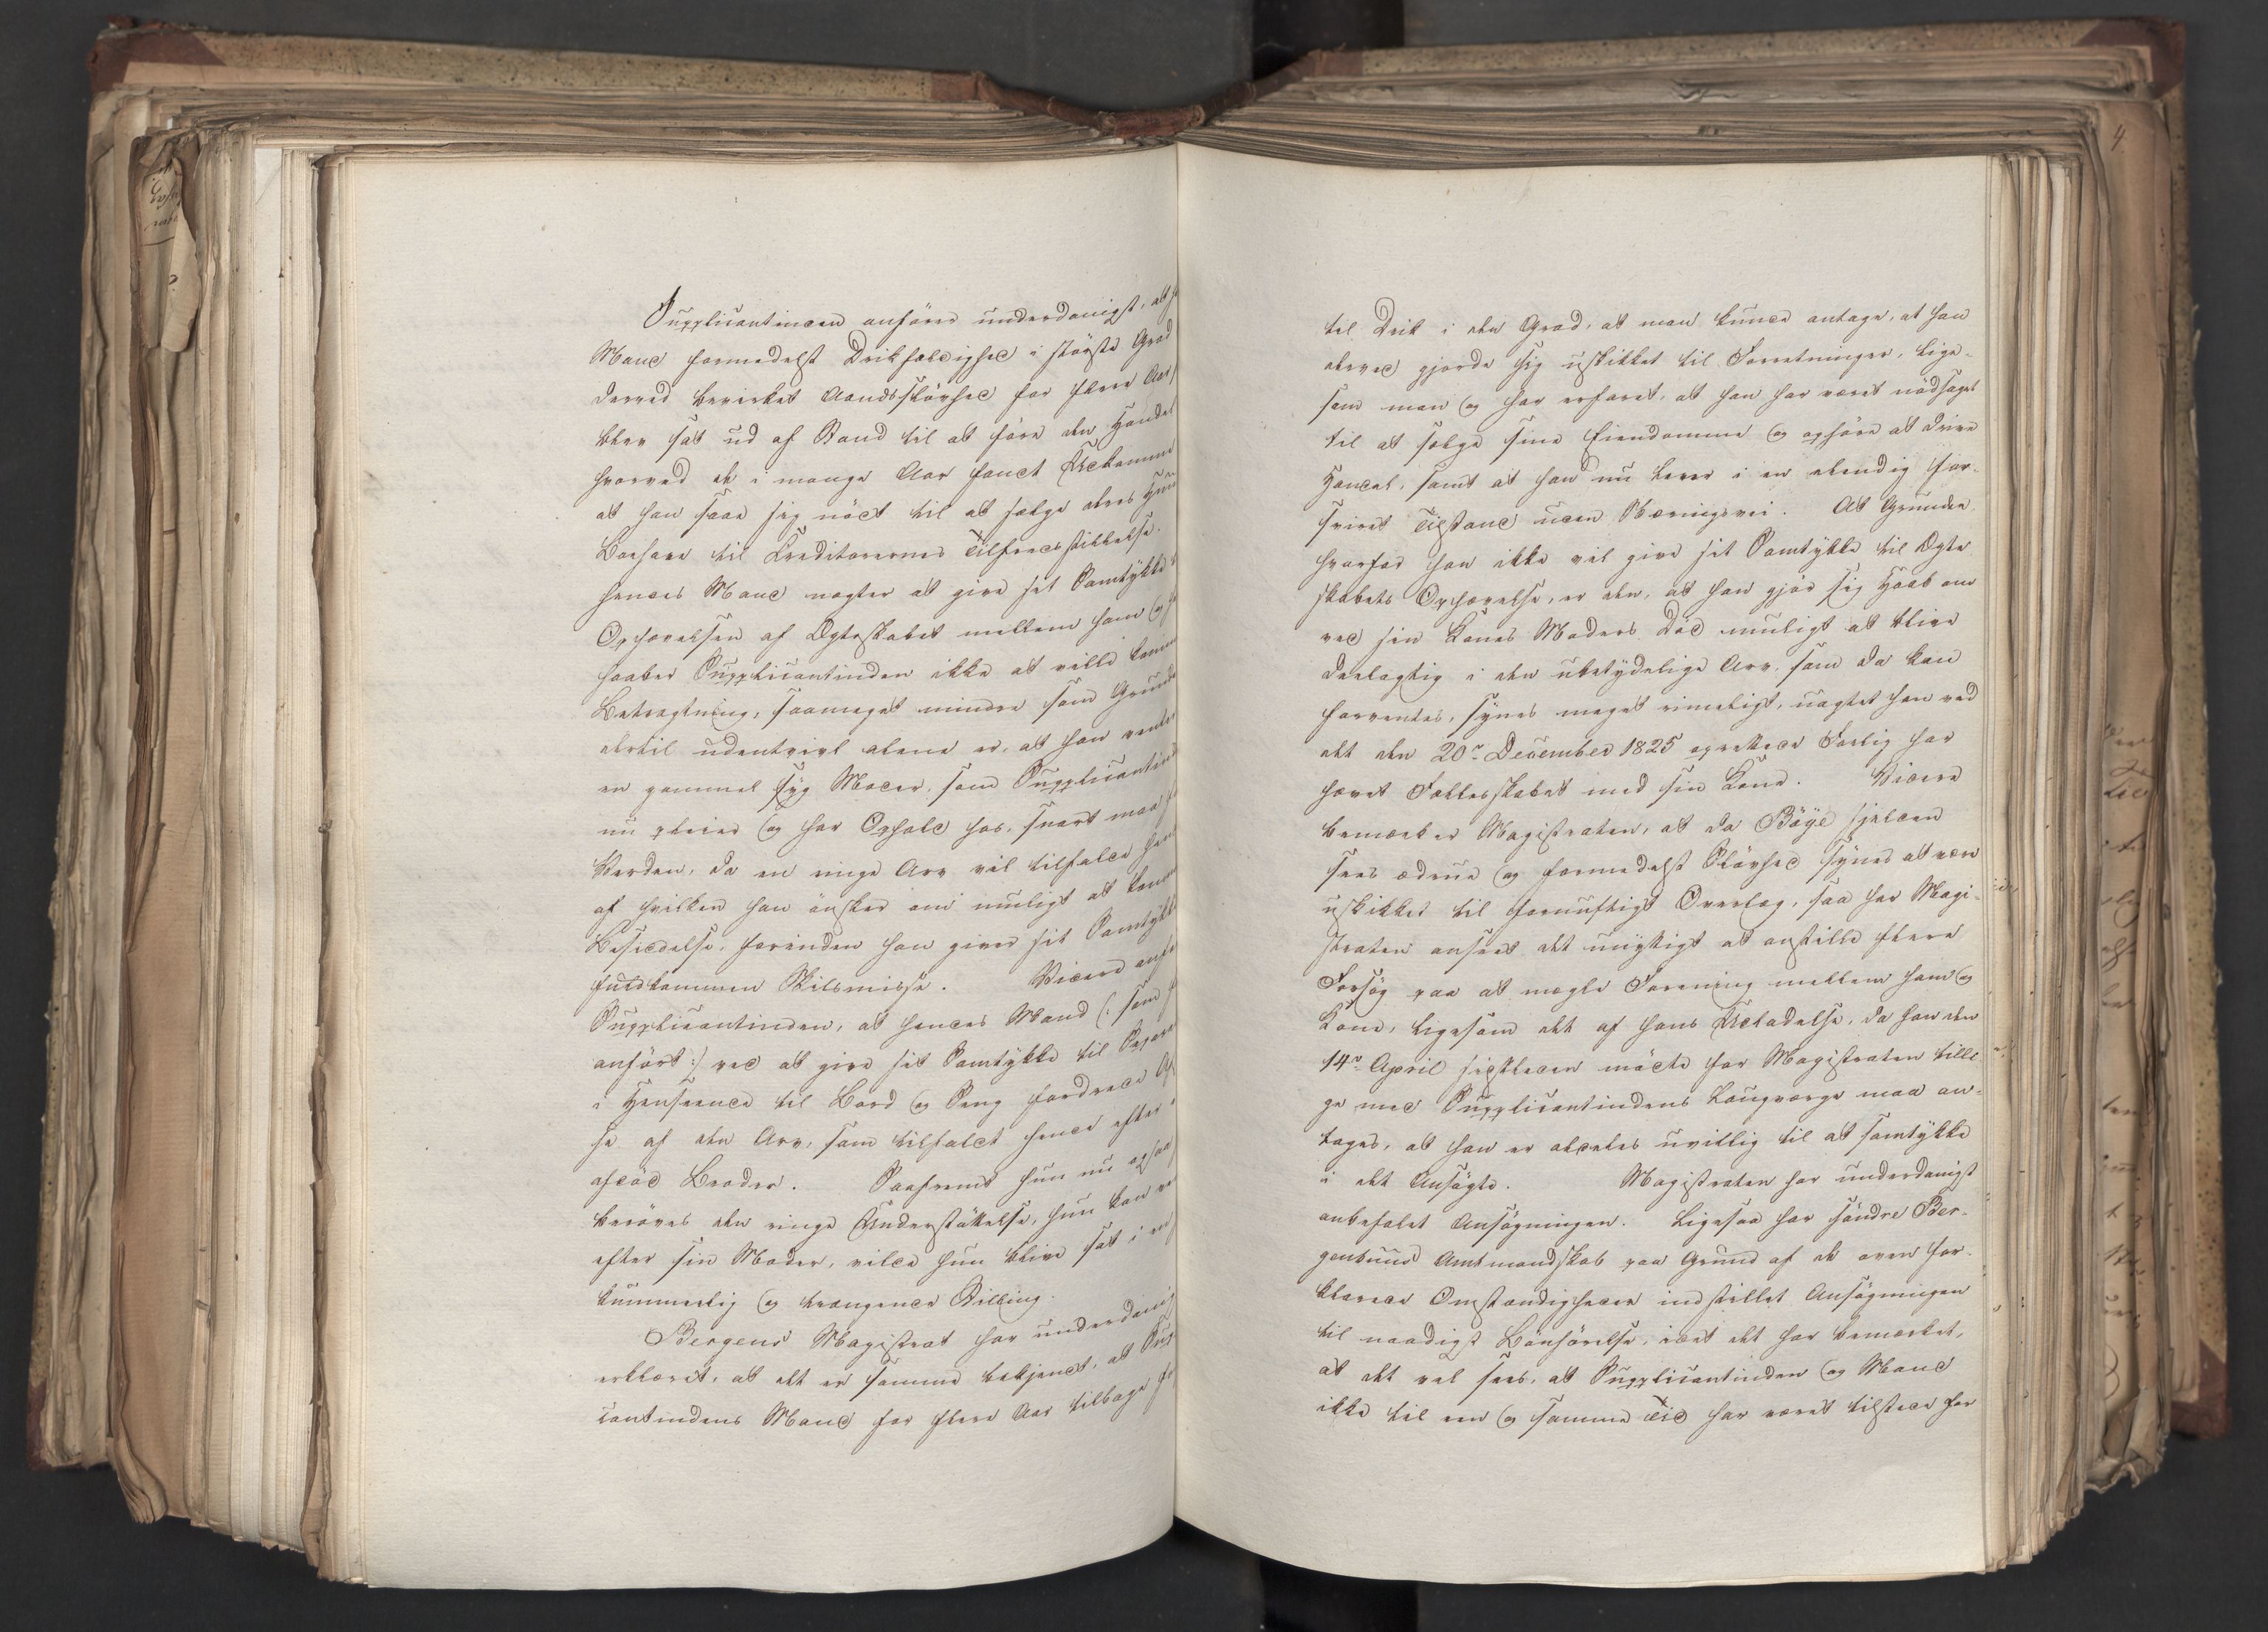 Supplicantinden anfører underdanigst, at
Mand formedelst Drikfældighed i største Grad
derved bevirket Aandssløvhed for flere Aar
blev sat ud af Stand til at føre den Handel
hvorved de i mange Aar fandt Udkomme
at han saae sig nødt til at sælge deres
Boehave til Creditorernes Tilfredsstillelse.
hendes Mand nægter at give sit Samtykke
Ophævelsen af Ægteskabet mellem ham og
haaber Supplicantinden ikke at ville komme
Betragtning, saameget mindre som Grunden
dertil udentvivl alene er, at han venter
en gammel syg Moder, som Supplicantinden
nu pleier og har Ophold hos, snart maa
Verden, da en ringe Arv vil tilfalde
af hvilken han ønsker om muligt at komme
Besiddelse, førinden han giver sit Samtykke
fuldkommen Skilsmisse. Videre
Supplicantinden, at hendes Mand (: som
anført :) ved at give sit Samtykke til
i Henseende til Bord og Seng fordrede
se af den Arv, som tilfaldt hende efter
afdød Broder. Saafremt hun nu ogsaa
berøves den ringe Understøttelse, hun kan
efter sin Moder, vilde hun blive sat i en
kummerlig og trængende Stilling.
Bergens Magistrat har underdanigst
erklæret, at det er samme bekjendt, at
cantindens Mand for flere Aar tilbage
til Drik i den Grad, at man kunde antage, at han
derved gjorde sig uskikket til Forretninger, lige-
som man og har erfaret, at han har været nødsaget
til at sælge sine Eiendomme og ophøre at drive
Handel, samt at han nu lever i en elendig for-
svivet Tilstand uden Næringsvei. At Grunden
hvorfor han ikke vil give sit Samtykke til Ægte
skabets Ophævelse, er den, at han gjør sig Haab om
ved sin Kones Moders Død muligt at blive
deelagtig i den ubetydelige Arv, som da kan
forventes, synes meget rimeligt, uagtet han ved
det den 20de December 1825 oprettede Forlig har
hævet Fællesskabet med sin Kone. Videre
bemærker Magistraten, at da Böye sjelden
sees ædrue og formedelst Sløvhed synes at være
uskikket til fornuftigt Overlæg, saa har Magi-
straten anseet det unyttigt at anstille flere
Forsøg paa at mægle Forening mellem ham og
Kone, ligesom det af hans Udeladelse, da han den
14de April sidstleden mødte for Magistraten tilli
ge med Supplicantindens Laugværge maa an-
tages, at han er aldeles uvillig til at samtykke
i det Ansøgte. Magistraten har underdanigst
anbefalet Ansøgningen. Ligesaa har søndre Ber-
genhuus Amtmandskab paa Grund af de oven for-
klarede Omstændigheder indstillet Ansøgningen
til naadigst Bønhørelse, idet det har bemærket,
at det vel sees, at Supplicantinden og Mand
ikke til een og samme Tid har været tilstede for
4